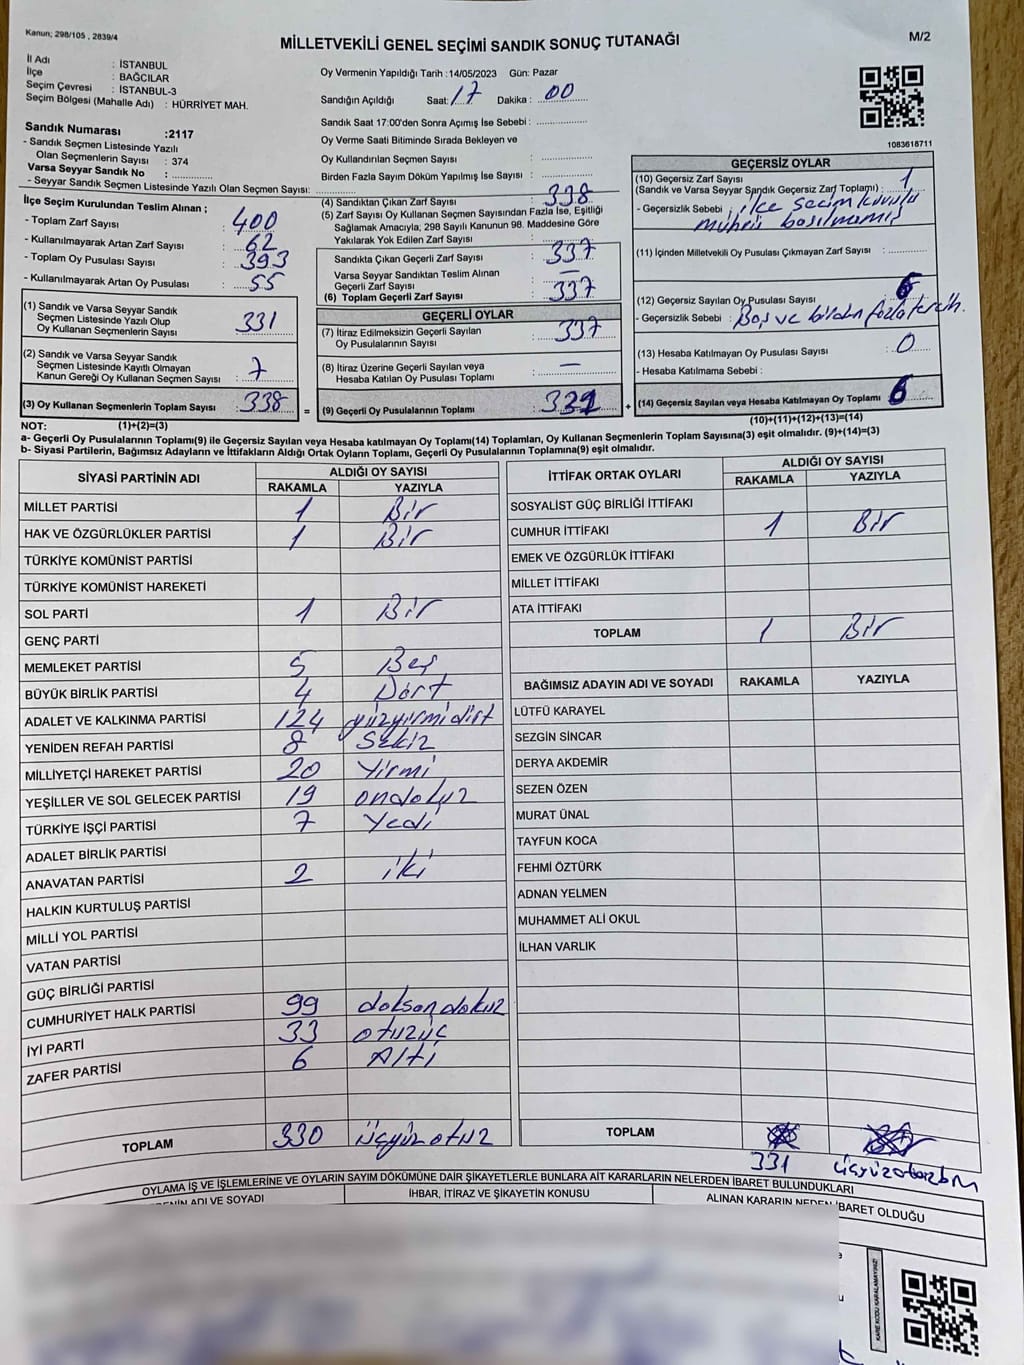 Kanun; 298/105 , 2839/4
MİLLETVEKİLİ GENEL SEÇİMİ SANDIK SONUÇ TUTANAĞI
M/2
İl Adı : İSTANBUL
İlçe : BAĞCILAR
Seçim Çevresi : İSTANBUL-3
Seçim Bölgesi (Mahalle Adı) : HÜRRİYET MAH.
Sandık Numarası :2117
- Sandık Seçmen Listesinde Yazılı
Olan Seçmenlerin Sayısı : 374
Varsa Seyyar Sandık No :
- Seyyar Sandık Seçmen Listesinde Yazılı Olan Seçmen Sayısı:
Oy Vermenin Yapıldığı Tarih :14/05/2023 Gün: Pazar
Sandığın Açıldığı Saat: 17 Dakika : 00
Sandık Saat 17:00'den Sonra Açımış İse Sebebi :
Oy Verme Saati Bitiminde Sırada Bekleyen ve
Oy Kullandırılan Seçmen Sayısı :
Birden Fazla Sayım Döküm Yapılmış İse Sayısı :
1083618711
İlçe Seçim Kurulundan Teslim Alınan ;
- Toplam Zarf Sayısı : 400
- Kullanılmayarak Artan Zarf Sayısı : 62
- Toplam Oy Pusulası Sayısı : 393
- Kullanılmayarak Artan Oy Pusulası : 55
(1) Sandık ve Varsa Seyyar Sandık
Seçmen Listesinde Yazılı Olup
Oy Kullanan Seçmenlerin Sayısı : 331
(2) Sandık ve Varsa Seyyar Sandık
Seçmen Listesinde Kayıtlı Olmayan
Kanun Gereği Oy Kullanan Seçmen Sayısı : 7
(3) Oy Kullanan Seçmenlerin Toplam Sayısı : 338
(4) Sandıktan Çıkan Zarf Sayısı : 338
(5) Zarf Sayısı Oy Kullanan Seçmen Sayısından Fazla İse, Eşitliği
Sağlamak Amacıyla; 298 Sayılı Kanunun 98. Maddesine Göre
Yakılarak Yok Edilen Zarf Sayısı :
Sandıkta Çıkan Geçerli Zarf Sayısı : 337
Varsa Seyyar Sandıktan Teslim Alınan
Geçerli Zarf Sayısı : —
(6) Toplam Geçerli Zarf Sayısı : 337
GEÇERLİ OYLAR
(7) İtiraz Edilmeksizin Geçerli Sayılan
Oy Pusulalarının Sayısı : 337
(8) İtiraz Üzerine Geçerli Sayılan veya
Hesaba Katılan Oy Pusulası Toplamı : —
(9) Geçerli Oy Pusulalarının Toplamı : 331
GEÇERSİZ OYLAR
(10) Geçersiz Zarf Sayısı
(Sandık ve Varsa Seyyar Sandık Geçersiz Zarf Toplamı) : 1
- Geçersizlik Sebebi : ilçe seçim kurulu
mührü basılmamış
(11) İçinden Milletvekili Oy Pusulası Çıkmayan Zarf Sayısı :
(12) Geçersiz Sayılan Oy Pusulası Sayısı : 6
- Geçersizlik Sebebi : Boş ve birden fazla tercih.
(13) Hesaba Katılmayan Oy Pusulası Sayısı : 0
- Hesaba Katılmama Sebebi :
= + (14) Geçersiz Sayılan veya Hesaba Katılmayan Oy Toplamı : 6
NOT: (1)+(2)=(3)
(10)+(11)+(12)+(13)=(14)
a- Geçerli Oy Pusulalarının Toplamı(9) ile Geçersiz Sayılan veya Hesaba katılmayan Oy Toplamı(14) Toplamları, Oy Kullanan Seçmenlerin Toplam Sayısına(3) eşit olmalıdır. (9)+(14)=(3)
b- Siyasi Partilerin, Bağımsız Adayların ve İttifakların Aldığı Ortak Oyların Toplamı, Geçerli Oy Pusulalarının Toplamına(9) eşit olmalıdır.
SİYASİ PARTİNİN ADI ALDIĞI OY SAYISI
RAKAMLA YAZIYLA
MİLLET PARTİSİ 1 Bir
HAK VE ÖZGÜRLÜKLER PARTİSİ 1 Bir
TÜRKİYE KOMÜNİST PARTİSİ
TÜRKİYE KOMÜNİST HAREKETİ
SOL PARTİ 1 Bir
GENÇ PARTİ
MEMLEKET PARTİSİ 5 Beş
BÜYÜK BİRLİK PARTİSİ 4 Dört
ADALET VE KALKINMA PARTİSİ 124 yüzyirmidört
YENİDEN REFAH PARTİSİ 8 Sekiz
MİLLİYETÇİ HAREKET PARTİSİ 20 Yirmi
YEŞİLLER VE SOL GELECEK PARTİSİ 19 ondokuz
TÜRKİYE İŞÇİ PARTİSİ 7 Yedi
ADALET BİRLİK PARTİSİ
ANAVATAN PARTİSİ 2 iki
HALKIN KURTULUŞ PARTİSİ
MİLLİ YOL PARTİSİ
VATAN PARTİSİ
GÜÇ BİRLİĞİ PARTİSİ
CUMHURİYET HALK PARTİSİ 99 doksandokuz
İYİ PARTİ 33 otuzüç
ZAFER PARTİSİ 6 Altı
TOPLAM 330 üçyüzotuz
İTTİFAK ORTAK OYLARI ALDIĞI OY SAYISI
RAKAMLA YAZIYLA
SOSYALİST GÜÇ BİRLİĞİ İTTİFAKI
CUMHUR İTTİFAKI 1 Bir
EMEK VE ÖZGÜRLÜK İTTİFAKI
MİLLET İTTİFAKI
ATA İTTİFAKI
TOPLAM 1 Bir
BAĞIMSIZ ADAYIN ADI VE SOYADI RAKAMLA YAZIYLA
LÜTFÜ KARAYEL
SEZGİN SİNCAR
DERYA AKDEMİR
SEZEN ÖZEN
MURAT ÜNAL
TAYFUN KOCA
FEHMİ ÖZTÜRK
ADNAN YELMEN
MUHAMMET ALİ OKUL
İLHAN VARLIK
TOPLAM
331 üçyüzotuzbir
OYLAMA İŞ VE İŞLEMLERİNE VE OYLARIN SAYIM DÖKÜMÜNE DAİR ŞİKAYETLERLE BUNLARA AİT KARARLARIN NELERDEN İBARET BULUNDUKLARI
ADI VE SOYADI İHBAR, İTİRAZ VE ŞİKAYETİN KONUSU ALINAN KARARIN NEDEN İBARET OLDUĞU
KARE KODU KARALAMAYINIZ!